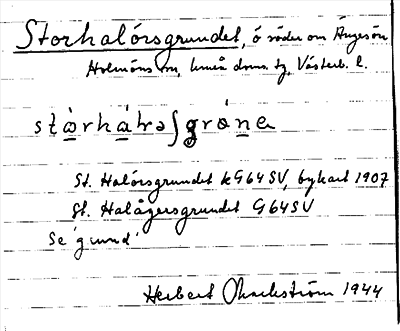 Storhalörsgrundet, ö söder om Ängesön
Holmöns sn, Umeå doms. tg, Västerb. l.
stòrhálrəʃgrónɐ
St. Halörsgrundet kG64SV, bykart 1907
St. Halågersgrundet G64SV
Se 'grund'
Herbert 1944